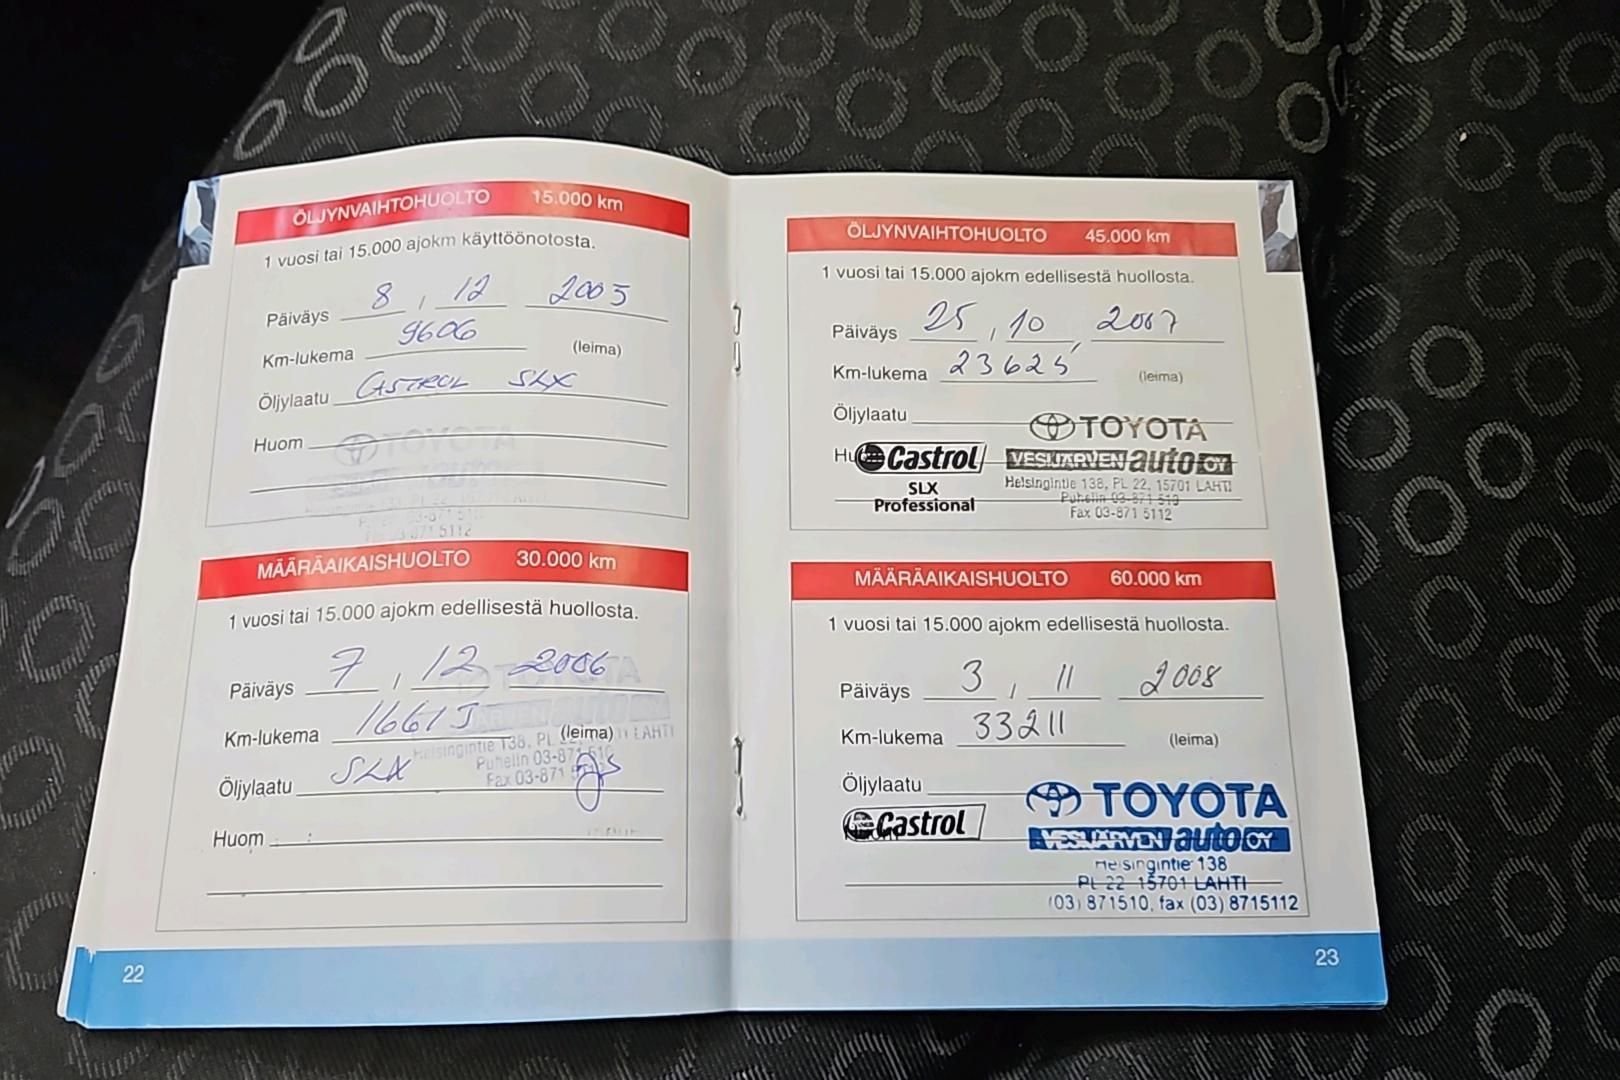 ÖLJYNVAIHTOHUOLTO 15.000 km
1 vuosi tai 15.000 ajokm käyttöönotosta.
Päiväys 8 , 12 2005
Km-lukema 9606 (leima)
Öljylaatu CASTROL SLX
Huom
TOYOTA
MÄÄRÄAIKAISHUOLTO 30.000 km
1 vuosi tai 15.000 ajokm edellisestä huollosta.
Päiväys 7 , 12 2006
Km-lukema 16615 (leima)
Öljylaatu SLX
TOYOTA
Helsingintie 138, PL 22, LAHTI
Puhelin 03-871 510
Fax 03-871
Huom
22
ÖLJYNVAIHTOHUOLTO 45.000 km
1 vuosi tai 15.000 ajokm edellisestä huollosta.
Päiväys 25 , 10 , 2007
Km-lukema 23625 (leima)
Öljylaatu
Castrol
SLX
Professional
TOYOTA
VESIJÄRVEN auto OY
Helsingintie 138, PL 22, 15701 LAHTI
Puhelin 03-871 510
Fax 03-871 5112
MÄÄRÄAIKAISHUOLTO 60.000 km
1 vuosi tai 15.000 ajokm edellisestä huollosta.
Päiväys 3 , 11 2008
Km-lukema 33211 (leima)
Öljylaatu
Castrol
TOYOTA
VESIJÄRVEN auto OY
Helsingintie 138
PL 22 15701 LAHTI
(03) 871510, fax (03) 8715112
23